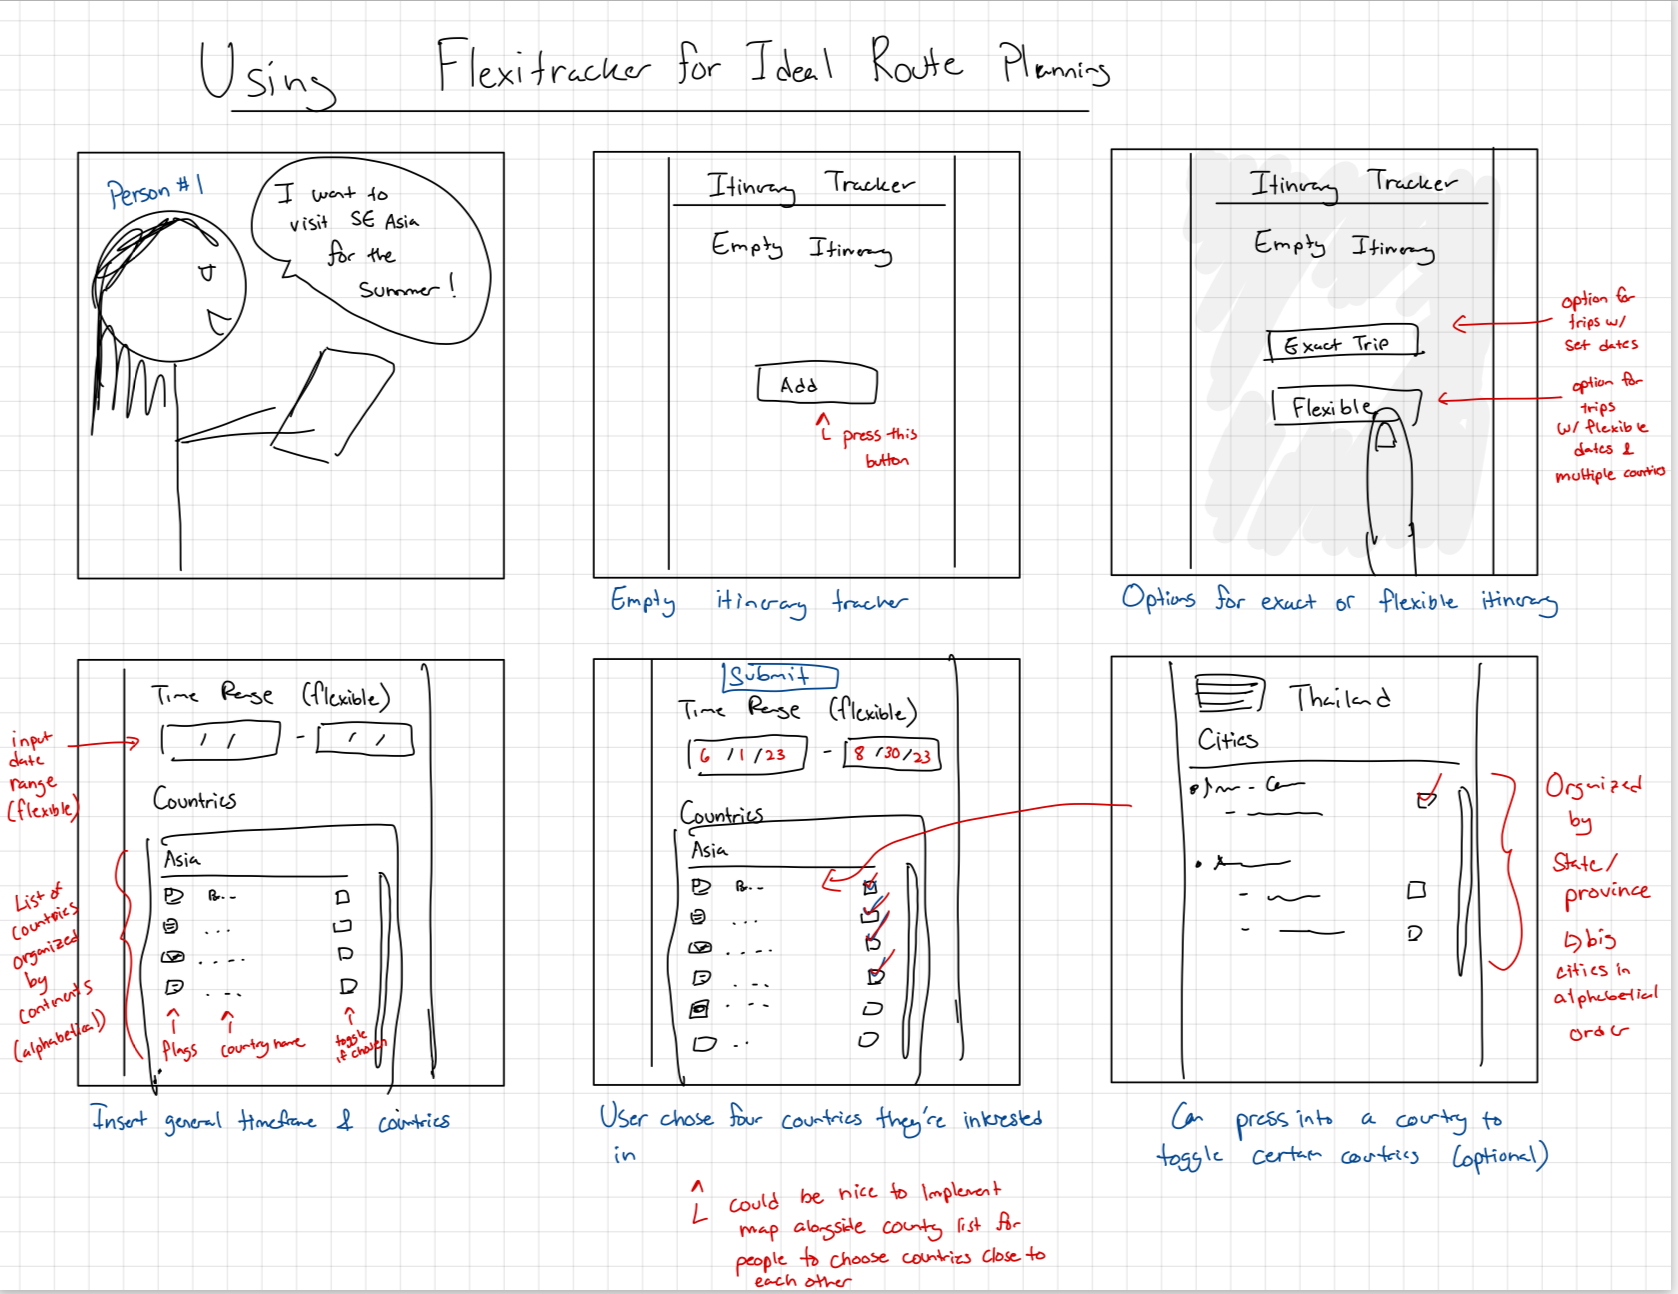 Using Flexitracker for Ideal Route Planning
Person #1
I want to
visit SE Asia
for the
summer!
Itinerary Tracker
Empty Itinerary
Add
press this
button
Empty itinerary tracker
Itinerary Tracker
Empty Itinerary
Exact Trip
Flexible
option for
trips w/
set dates
option for
trips
w/ flexible
dates &
multiple countries
Options for exact or flexible itinerary
Time Range (flexible)
/ / - / /
Countries
Asia
B...
...
....
...
flags
country name
toggle
if chosen
input
date
range
(flexible)
List of
countries
organized
by
continents
(alphabetical)
Insert general timeframe & countries
Submit
Time Range (flexible)
6/1/23 - 8/30/23
Countries
Asia
B...
...
....
...
...
..
User chose four countries they're interested
in
could be nice to implement
map alongside county list for
people to choose countries close to
each other
Thailand
Cities
Organized
by
State/
province
big
cities in
alphabetical
order
Can press into a country to
toggle certain countries (optional)